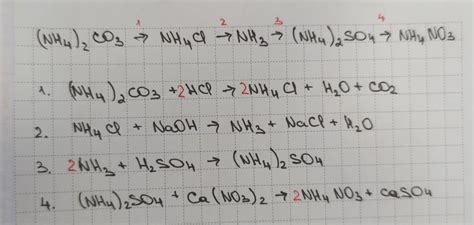 1 2 3 4
(NH4)2CO3 → NH4Cl → NH3 → (NH4)2SO4 → NH4NO3
1. (NH4)2CO3 + 2HCl → 2NH4Cl + H2O + CO2
2. NH4Cl + NaOH → NH3 + NaCl + H2O
3. 2NH3 + H2SO4 → (NH4)2SO4
4. (NH4)2SO4 + Ca(NO3)2 → 2NH4NO3 + CaSO4